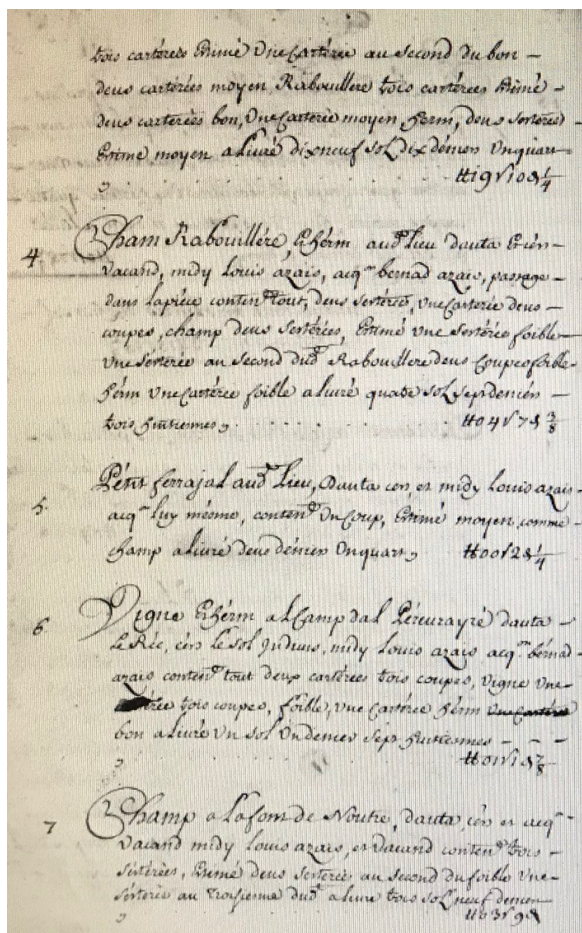 trois cartérées Estimé Une Cartérée au Second du bon –
deus cartérées moyen Rabouillere trois cartérées Estimé –
deus cartérées bon, Une Cartérée moyen, herm, deus sertérées
Estimé moyen alivré dixneuf sol dix dénien Un quart
, . . . . . . . . . . ₶19 s 10 d 1/4
4. Cham Rabouillére, Et hérm aud. Lieu dauta Et cén –
Vacand, midy Louis azais, acq.on bernad azais, passage –
dans lapièce conten.d tout, deus sertérées, Une Carterée deus –
coupes, champ deus sertérées, Estimé une sertérée foible –
Une sertérée au second dud. Rabouillere deus Coupes foible
hérm Une Cartérée foible alivré quatre sol sept dénien –
trois huitiemes, . . . . . ₶04 s 7 d 3/8
5. Pétit ferrajal aud. Lieu, Dauta cén, et midy Louis azais –
acq.on luy mésme, conten.d Un Coup, Estimé moyen comme
champ alivré deus dénien Un quart, ₶00 s 2 d 1/4
6 Vigne Et hérm al Camp dal Péreurayré dauta –
Le Réc, cén le sol midy Louis azais acq.on bérnad
azais conten.d tout deux cartérées trois coupes, Vigne Une
trois coupes, foible, une cartérée hérm
bon alivré Un sol Un denien sept huitiemes – – –
, ₶01 s 1 d 7/8
7 Champ a Lafont de Noutre, dauta, cén et acq.on
Vacand midy Louis azais, et Vacand conten.d trois –
sertérées, Estimé deus sertérées au second du foible Une
sertérée au troisiemme dud. alivré trois sol neuf dénien
, ₶03 s 9 d